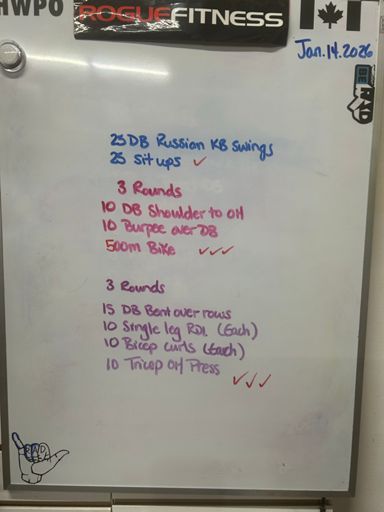 HWPO
ROGUEFITNESS
Jan.14.2026
BE RAD
25 DB Russian KB Swings
25 Sit ups ✓
3 Rounds
10 DB Shoulder to OH
10 Burpee over DB
500m Bike ✓✓✓
3 Rounds
15 DB Bent over rows
10 Single leg RDL (Each)
10 Bicep Curls (Each)
10 Tricep OH Press
✓✓✓